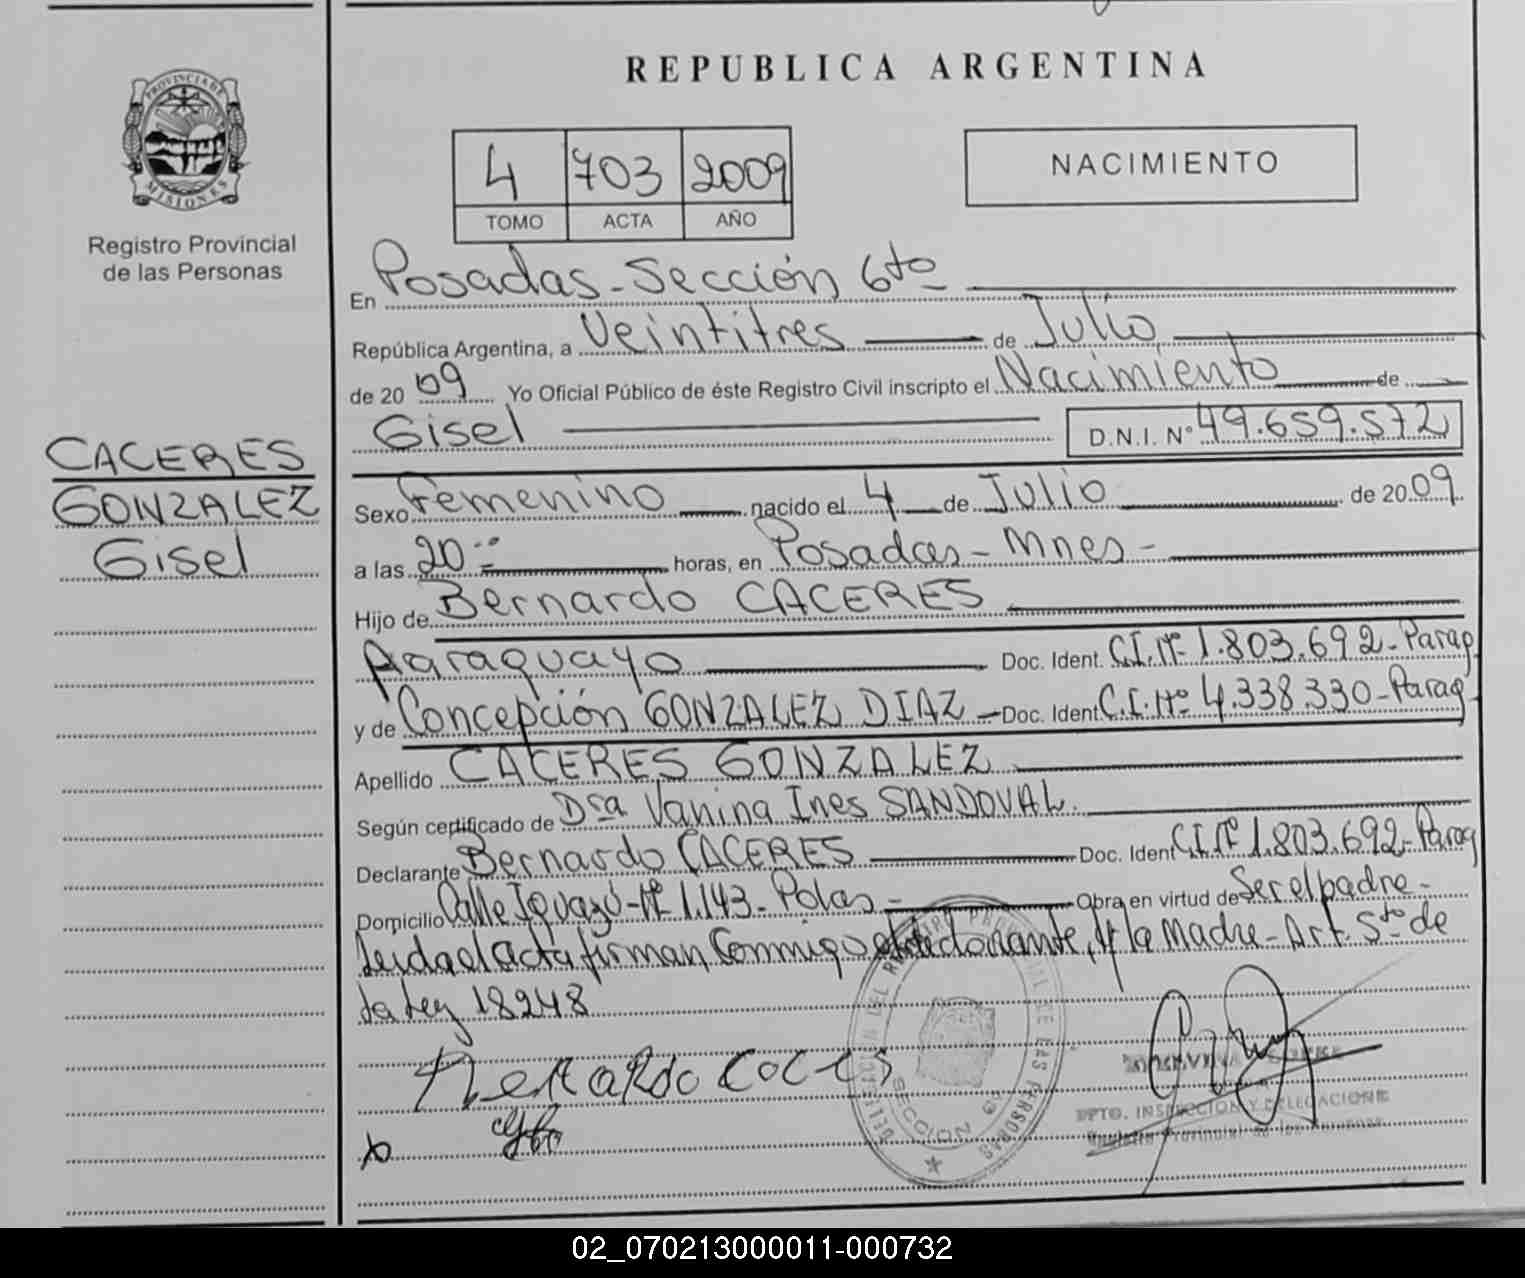 REPUBLICA ARGENTINA
PROVINCIA DE
MISIONES
Registro Provincial
de las Personas
4 703 2009
TOMO ACTA AÑO
NACIMIENTO
En Posadas - Sección 6to
República Argentina, a Veintitres de Julio
de 2009 Yo Oficial Público de éste Registro Civil inscripto el Nacimiento de
Gisel D.N.I. Nº 49.659.572
CACERES
GONZALEZ
Gisel
Sexo Femenino nacido el 4 de Julio de 2009
a las 20 horas, en Posadas - Mnes -
Hijo de Bernardo CACERES
Paraguayo Doc. Ident. C.I. Nº 1.803.692 - Parag
y de Concepción GONZALEZ DIAZ - Doc. Ident C.I. Nº 4.338.330 - Parag
Apellido CACERES GONZALEZ
Según certificado de Dra Vanina Ines SANDOVAL.
Declarante Bernardo CACERES Doc. Ident C.I Nº 1.803.692 - Parag
Domicilio Calle Iguazú - Nº 1.143 - Pdas - Obra en virtud de Ser el padre -
Leida el acta firman Conmigo el declarante, y la Madre - Art. 5to de
la Ley 18248
DELEGACION DEL REGISTRO PROVINCIAL DE LAS PERSONAS
SECCION 6a
DPTO. INSPECCION Y DELEGACIONE
Registro Provincial de las Personas
02_070213000011-000732